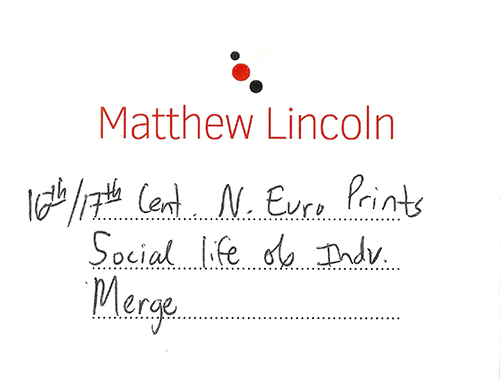 Matthew Lincoln
16th/17th Cent. N. Euro Prints
Social life of Indv.
Merge